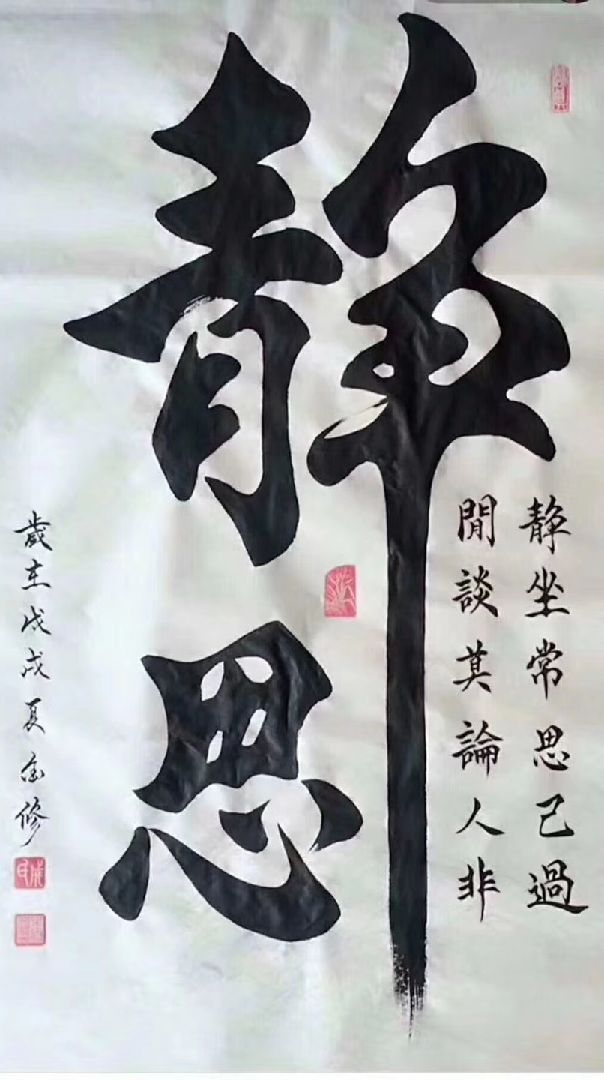 静思
静坐常思己過
閒談莫論人非
歲在戊戌夏 修